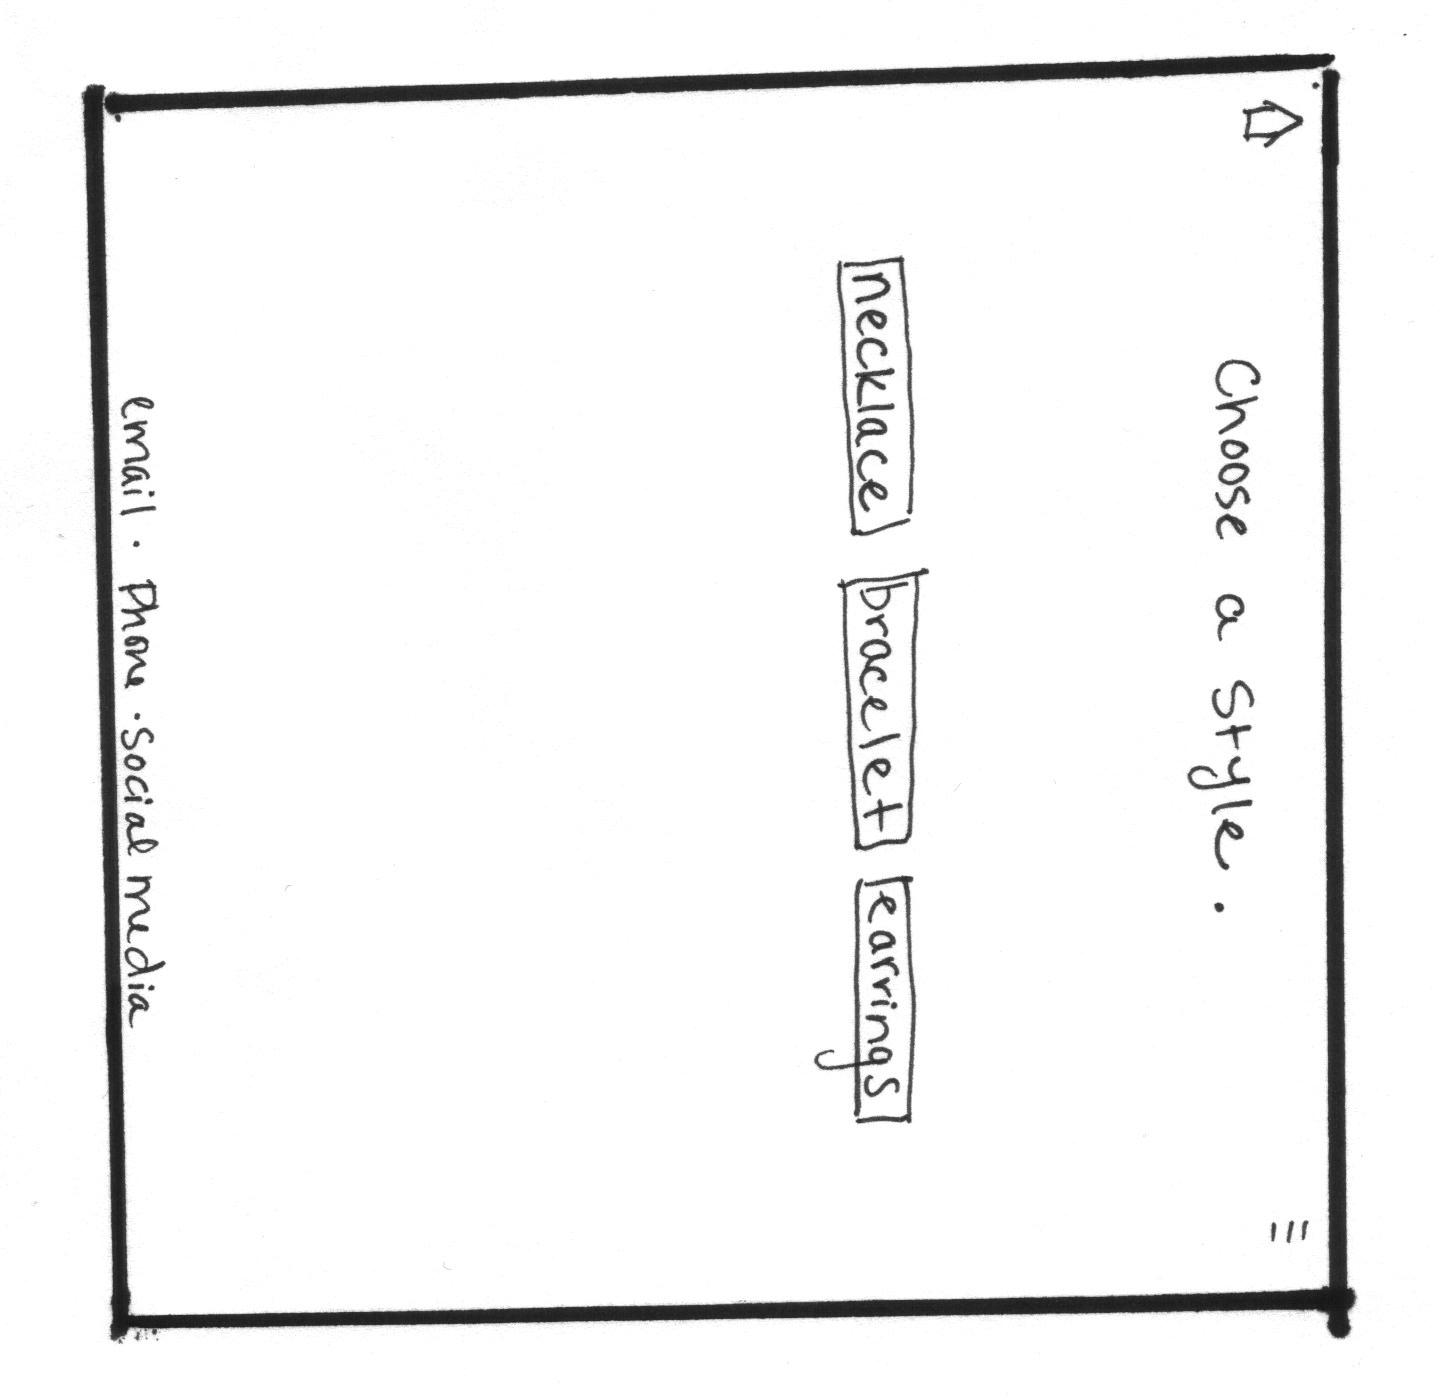 Choose a style.
necklace bracelet earrings
email · Phone · Social media